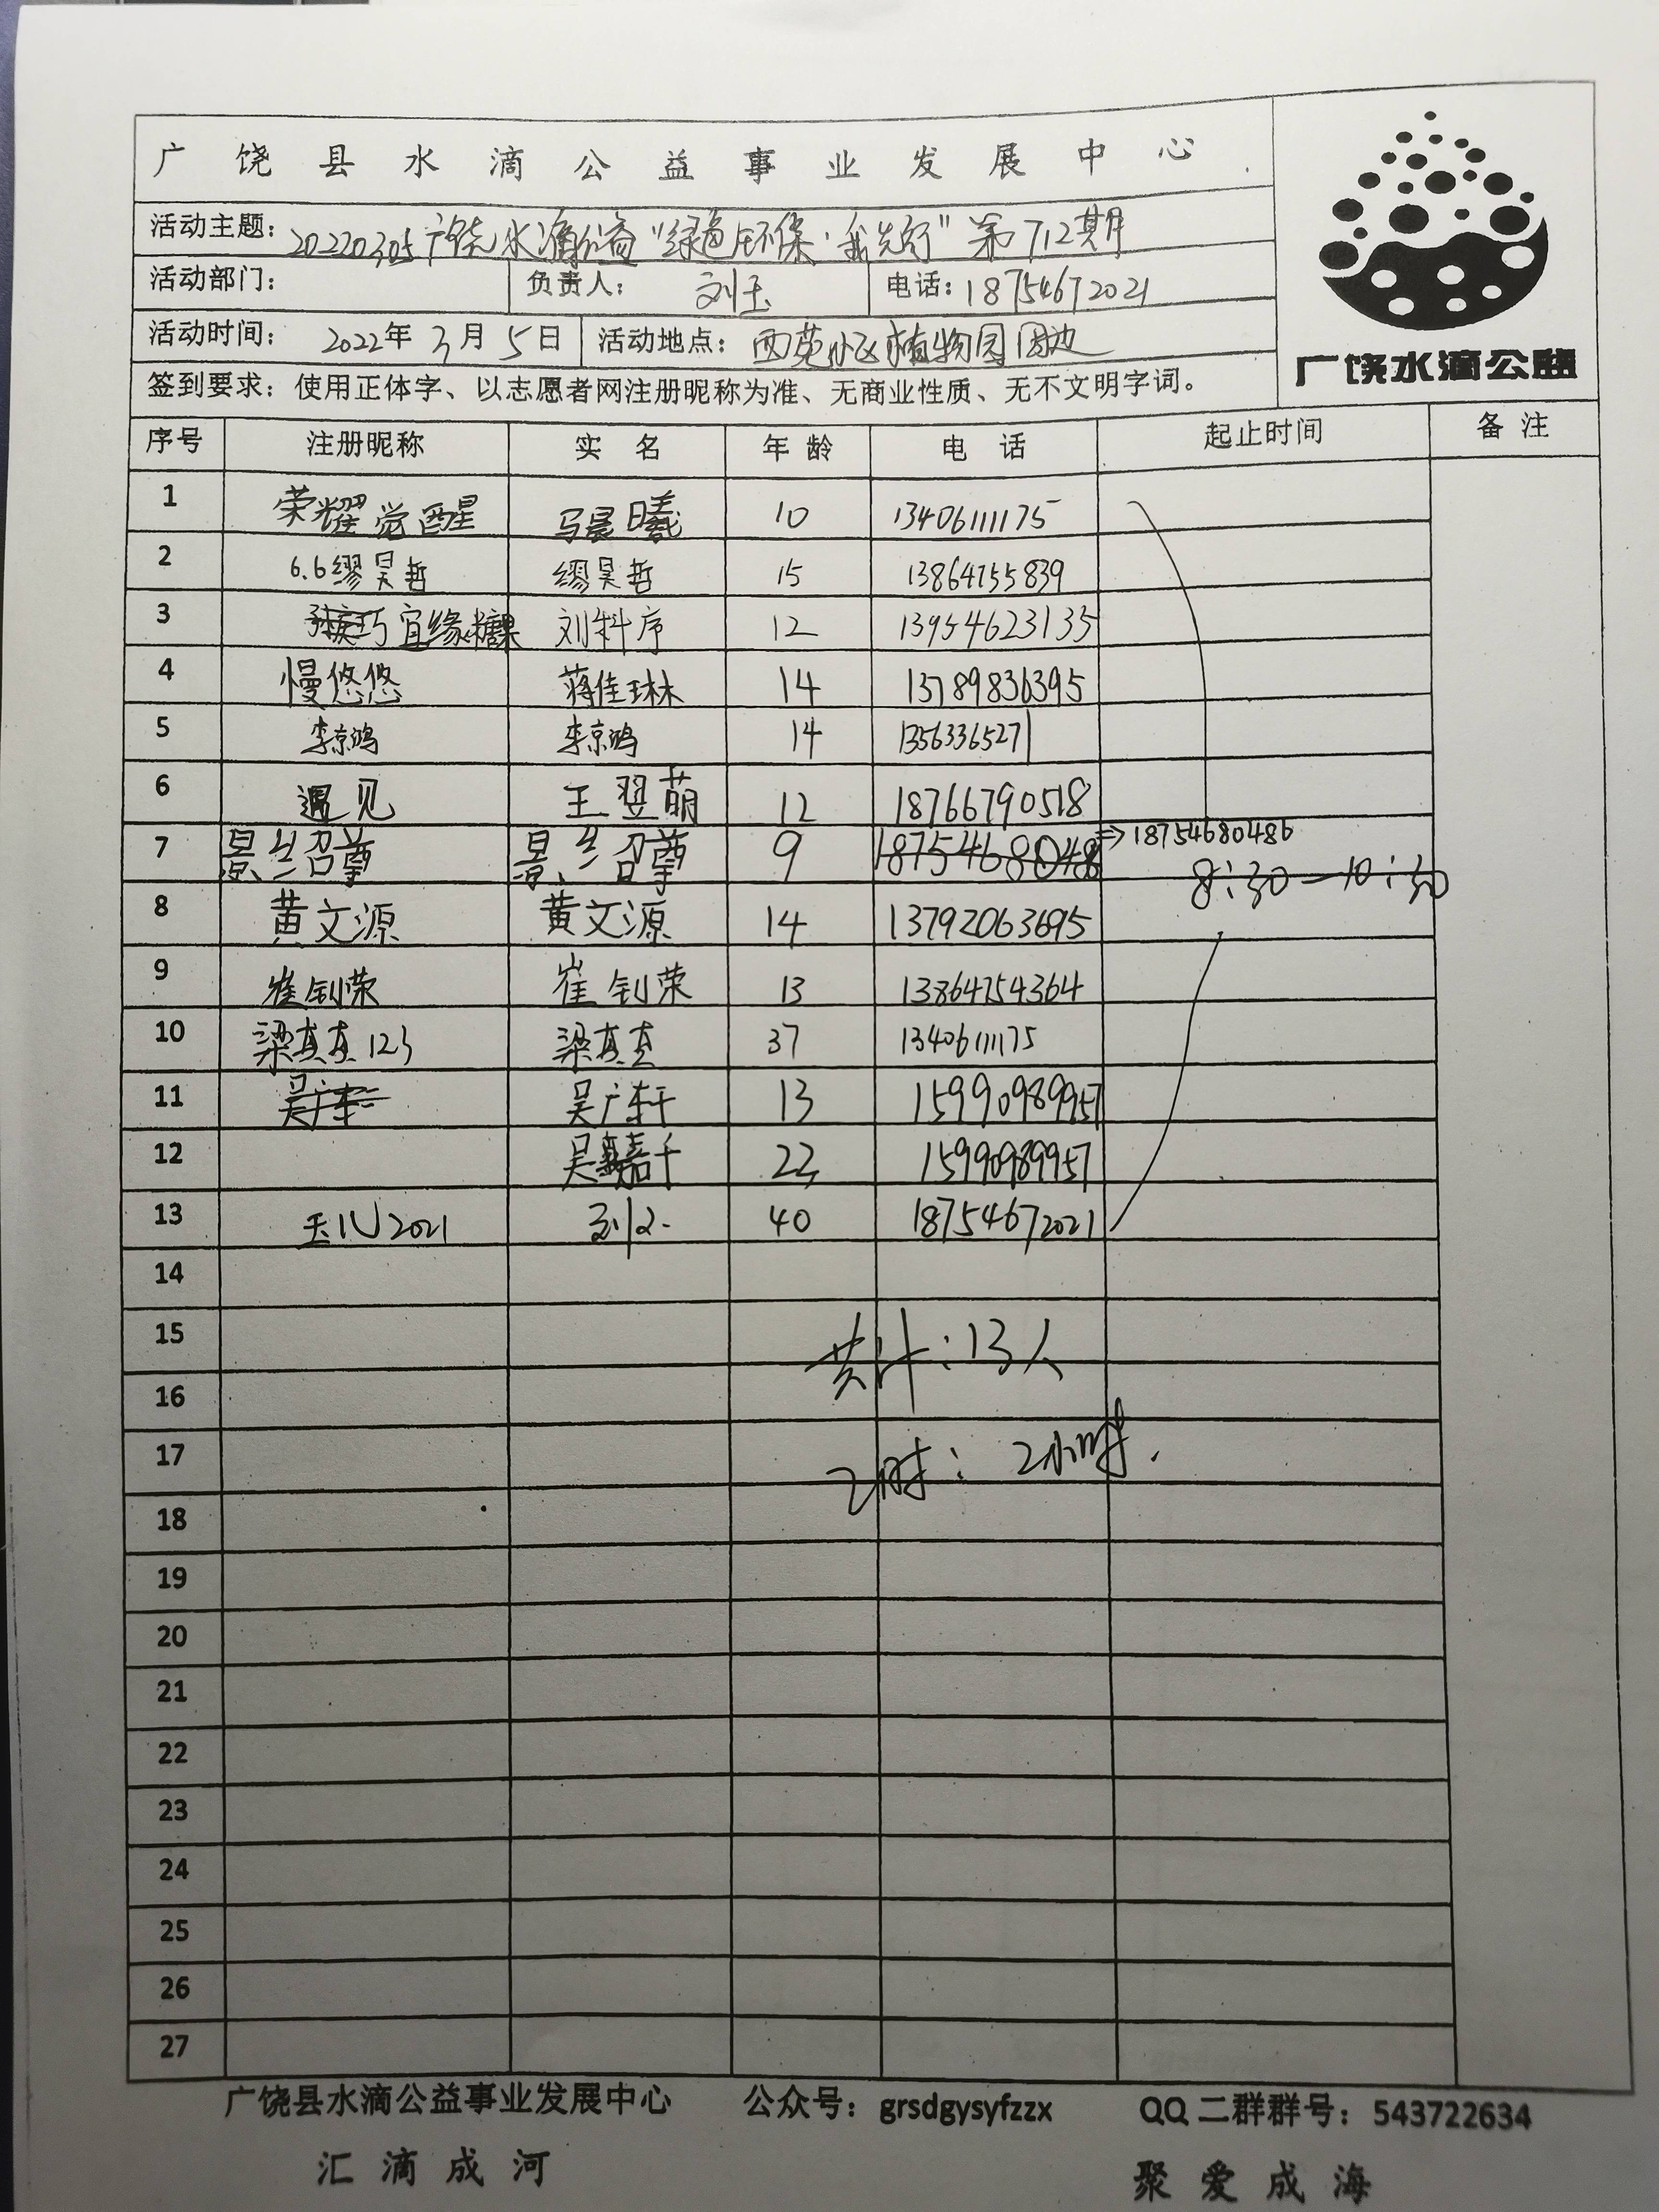 广饶县水滴公益事业发展中心
活动主题：20220305广饶水滴公益“绿色环保·我先行”第712期
活动部门： 负责人：刘玉 电话：18754672021
活动时间：2022年3月5日 活动地点：西苑小区植物园周边
签到要求：使用正体字、以志愿者网注册昵称为准、无商业性质、无不文明字词。
广饶水滴公益
序号 注册昵称 实名 年龄 电话 起止时间 备注
1 荣耀觉醒 马晨曦 10 13406111175
2 6.6缪昊哲 缪昊哲 15 13864755839
3 宜缘糖果 刘科序 12 13954623135
4 慢悠悠 蒋佳琳 14 13789836395
5 李京鸿 李京鸿 14 13563365271
6 遇见 王翌萌 12 18766790518
7 景兰召尊 景兰召尊 9 1875468048 ⇒18754680486
8:30—10:30
8 黄文源 黄文源 14 13792063695
9 崔钊荣 崔钊荣 13 13864754364
10 梁真真123 梁真真 37 13406111175
11 吴广轩 吴广轩 13 15990989957
12 吴嘉千 22 15990989957
13 玉儿2021 刘玉 40 18754672021
14
15
共计：13人
16
17
工时：2小时.
18
19
20
21
22
23
24
25
26
27
广饶县水滴公益事业发展中心 公众号：grsdgysyfzzx QQ二群群号：543722634
汇滴成河 聚爱成海